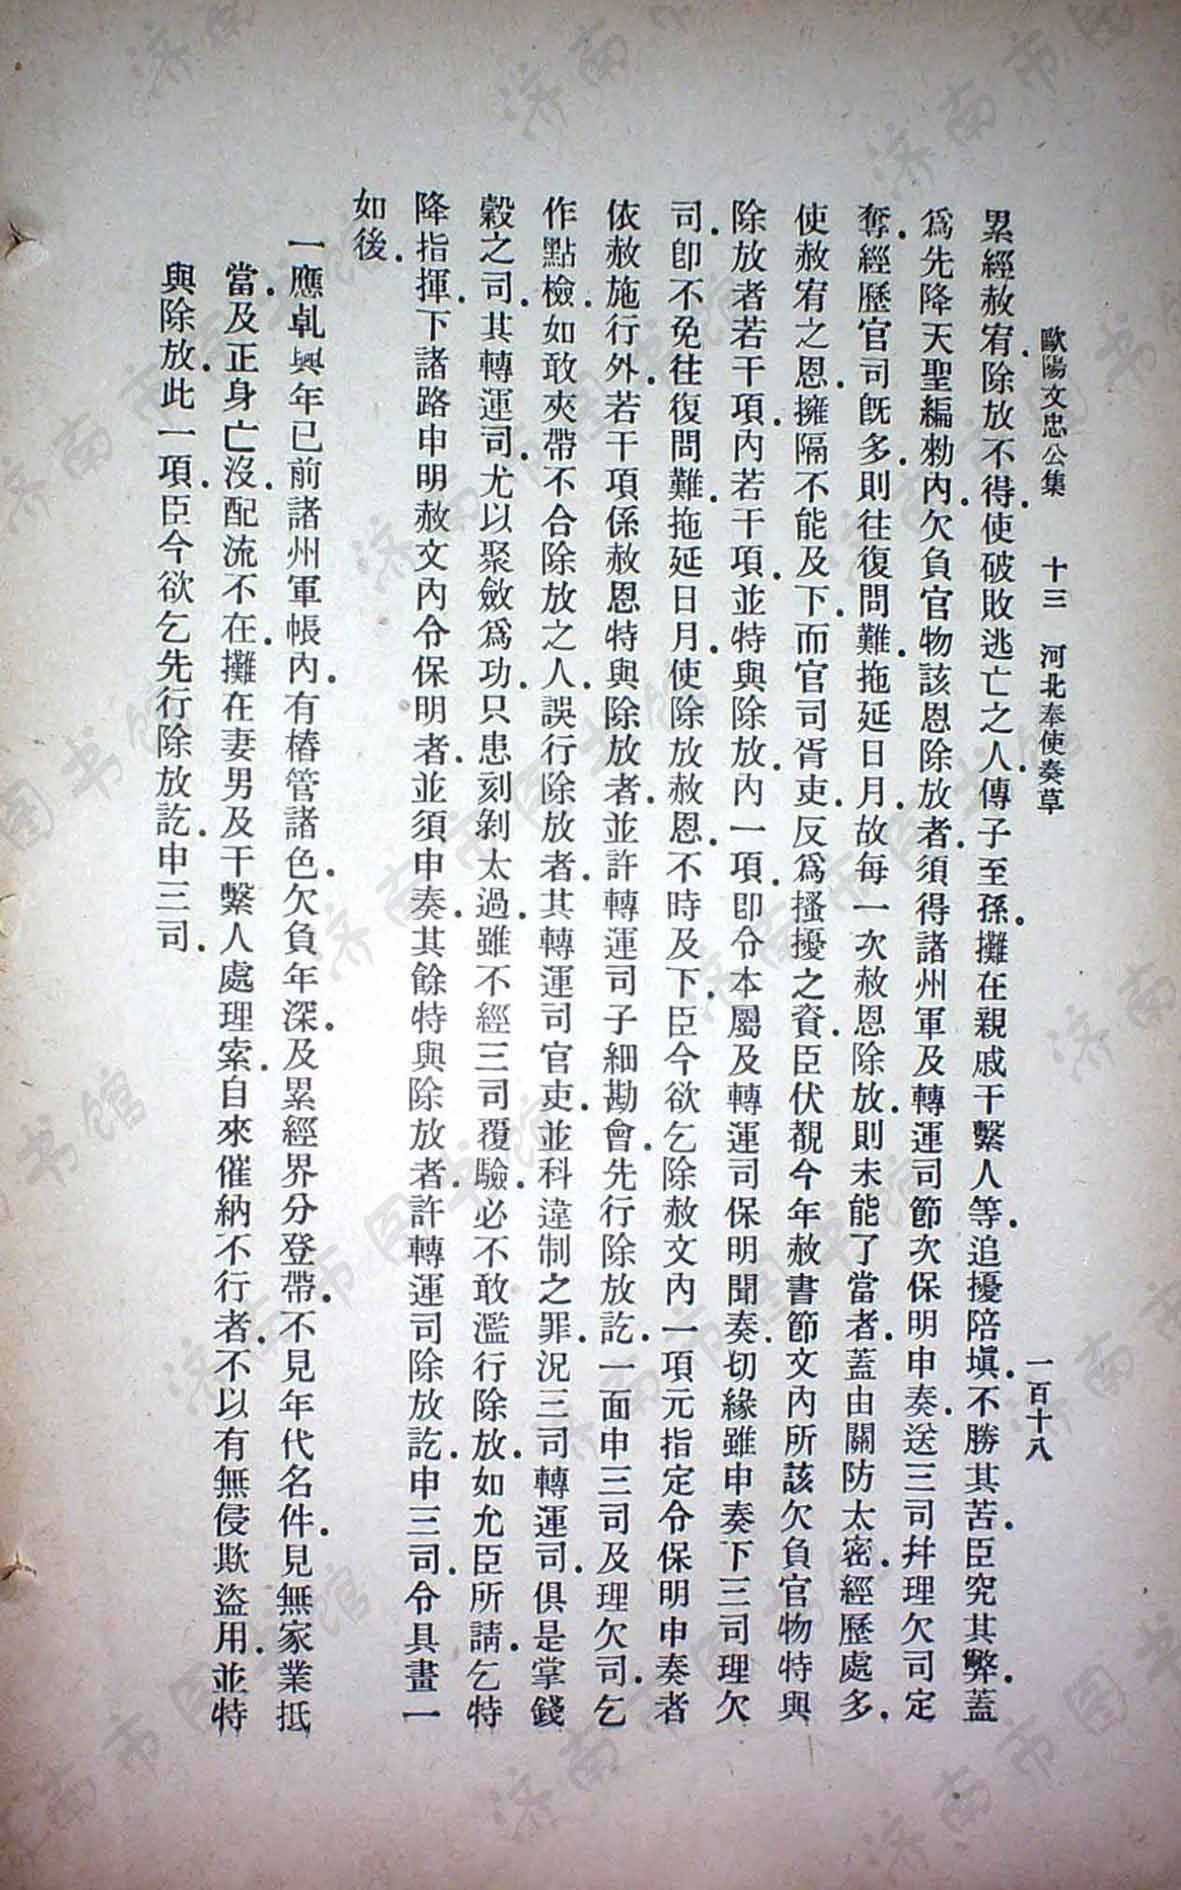 歐陽文忠公集　十三　河北奉使奏草　一百十八
累經赦宥.除放不得.使破敗逃亡之人.傳子至孫.攤在親戚干繫人等.追擾陪塡.不勝其苦.臣究其弊.蓋
爲先降天聖編勑內.欠負官物該恩除放者.須得諸州軍及轉運司節次保明申奏.送三司幷理欠司定
奪.經歷官司旣多.則往復問難.拖延日月.故每一次赦恩除放.則未能了當者.蓋由關防太密.經歷處多.
使赦宥之恩.擁隔不能及下.而官司胥吏.反爲搔擾之資.臣伏覩今年赦書節文內.所該欠負官物特與
除放者若干項.內若干項.並特與除放.內一項.卽令本屬及轉運司保明聞奏.切緣雖申奏下三司理欠
司.卽不免往復問難.拖延日月.使除放赦恩.不時及下.臣今欲乞除赦文內一項元指定令保明申奏者
依赦施行外.若干項係赦恩特與除放者.並許轉運司子細勘會.先行除放訖.一面申三司及理欠司.乞
作點檢.如敢夾帶不合除放之人.誤行除放者.其轉運司官吏.並科違制之罪.況三司轉運司.俱是掌錢
穀之司.其轉運司.尤以聚斂爲功.只患刻剝太過.雖不經三司覆驗.必不敢濫行除放.如允臣所請.乞特
降指揮.下諸路申明赦文內令保明者.並須申奏.其餘特與除放者.許轉運司除放訖.申三司.令具畫一
如後.
一應乹興年已前諸州軍帳內.有樁管諸色.欠負年深.及累經界分登帶.不見年代名件.見無家業抵
當.及正身亡沒.配流不在.攤在妻男及干繫人處理索.自來催納不行者.不以有無侵欺盜用.並特
與除放.此一項.臣今欲乞先行除放訖.申三司.